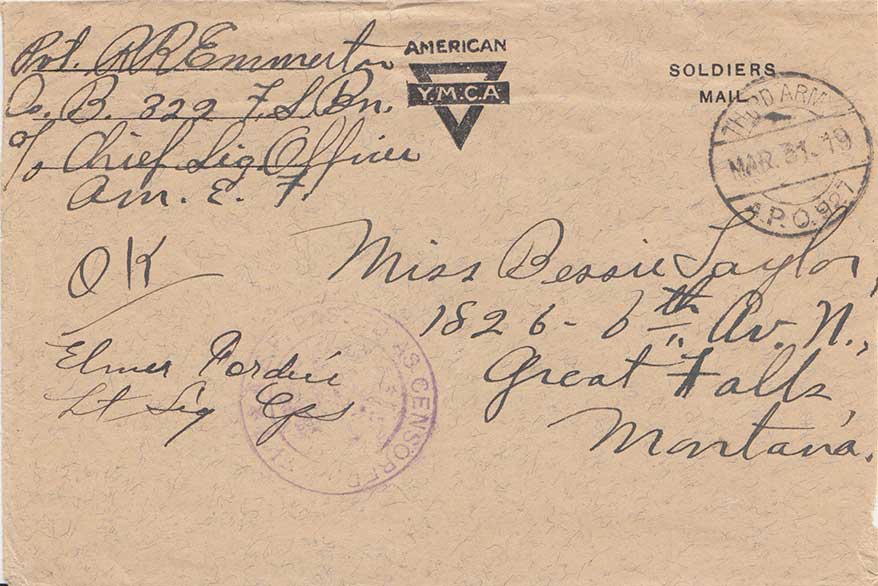 Pvt. R R Emmerton
Co. B. 322 F. S. Bn.
c/o Chief Sig. Officer
Am. E. F.
AMERICAN
Y.M.C.A.
SOLDIERS
MAIL
THIRD ARMY
MAR. 31. 19
A.P.O. 927
Miss Bessie Taylor,
1826 - 6th Av. N.,
Great Falls,
Montana.
OK
Elmer
Lt Sig Cps
AS CENSORED